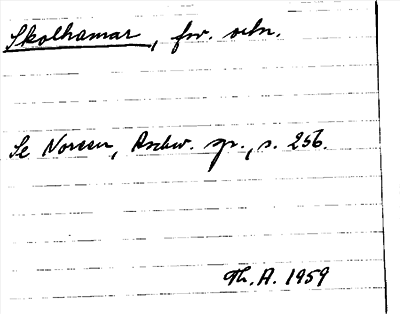 Skolhamar, fsv. ortn.
Se Noreen, Aschw. gr., s. 256.
Th. A. 1959